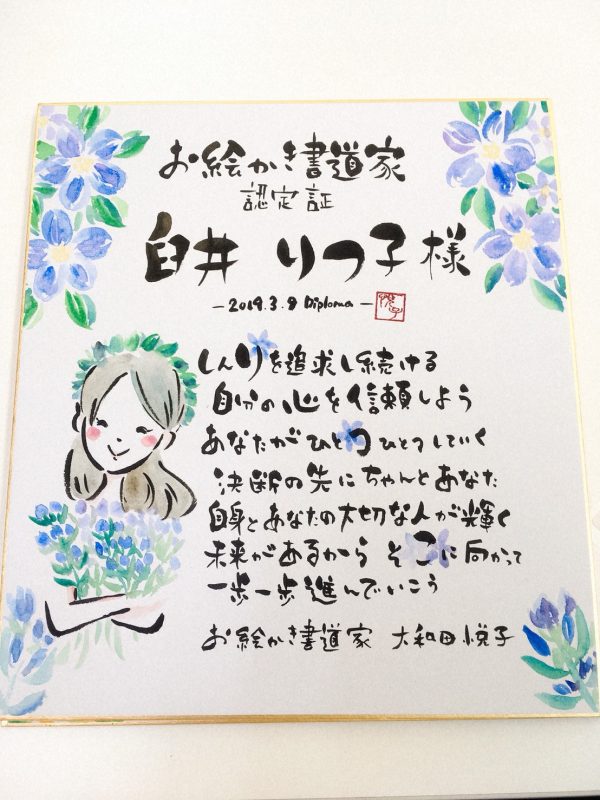 お絵かき書道家
認定証
臼井 りつ子様
-2019.3.9 Diploma-
しんりを追求し続ける
自分の心を信頼しよう
あなたがひとつひとつしていく
決断の先にちゃんとあなた
自身とあなたの大切な人が輝く
未来があるから そこに向かって
一歩一歩進んでいこう
お絵かき書道家 大和田悦子